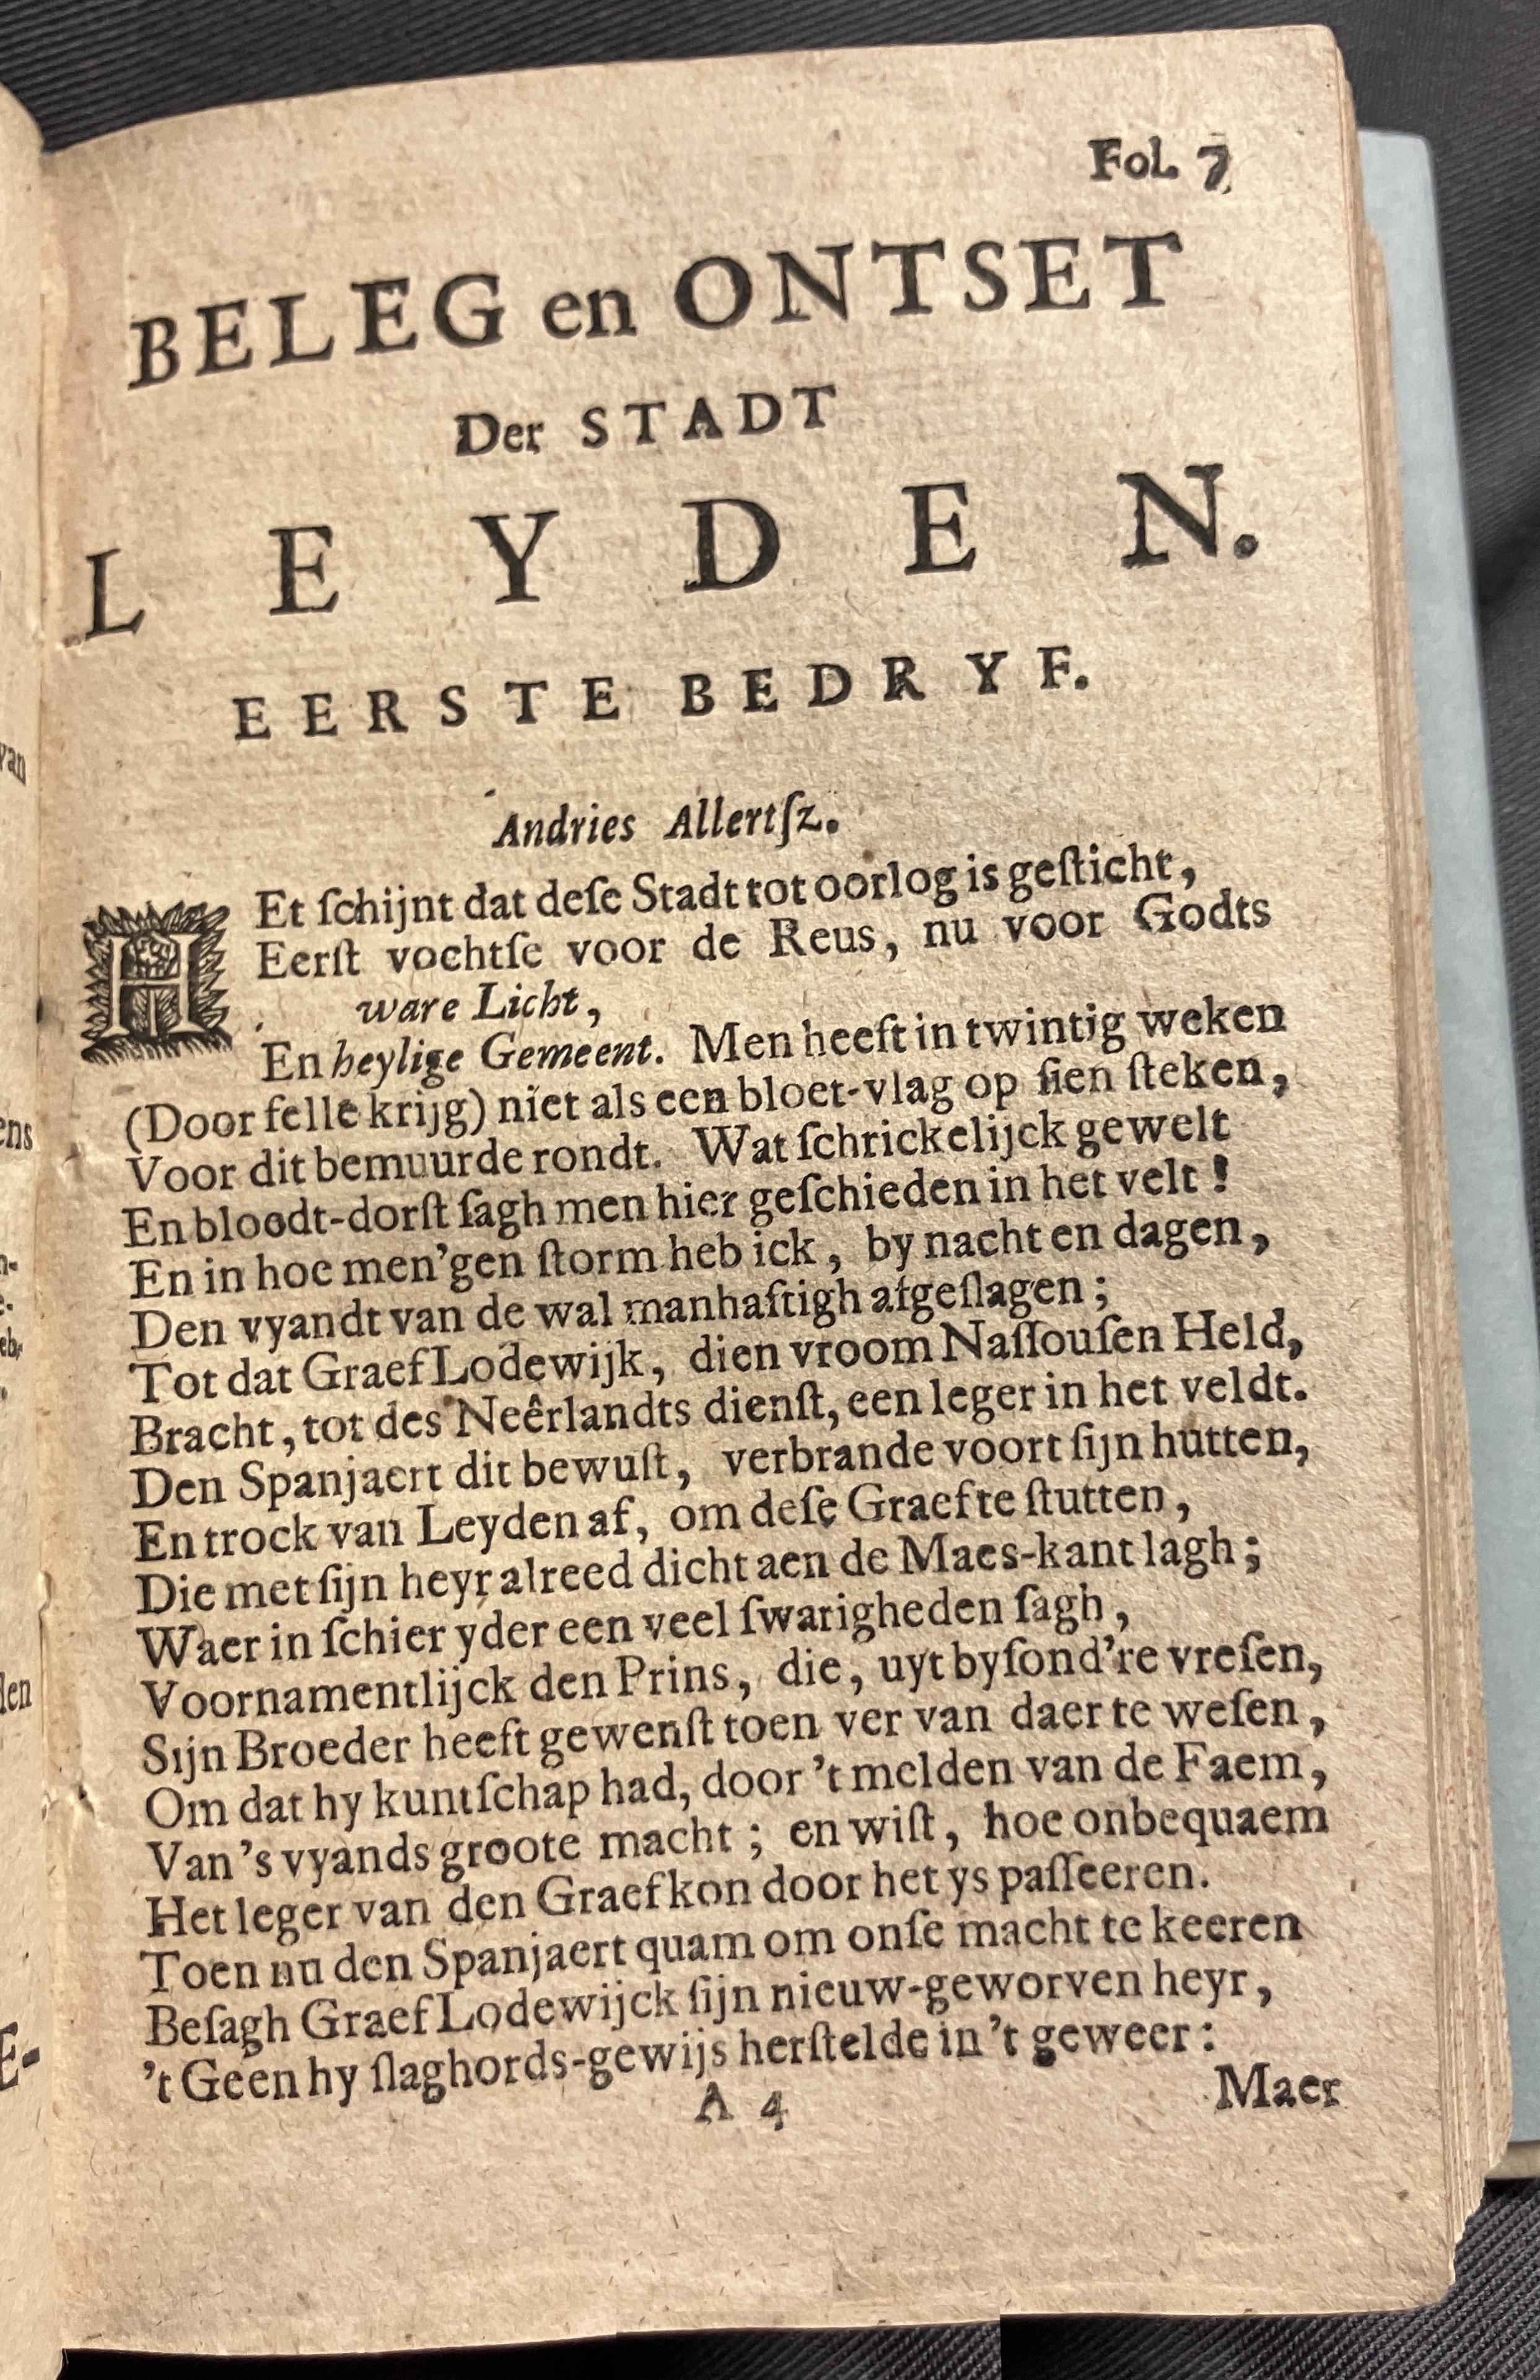 Fol. 7
BELEG en ONTSET
Der STADT
LEYDEN.
EERSTE BEDRYF.
Andries Allertſz.
HEt ſchijnt dat deſe Stadt tot oorlog is geſticht,
Eerſt vochtſe voor de Reus, nu voor Godts
ware Licht,
En heylige Gemeent. Men heeft in twintig weken
(Door felle krijg) niet als een bloet-vlag op ſien ſteken,
Voor dit bemuurde rondt. Wat ſchrickelijck gewelt
En bloodt-dorſt ſagh men hier geſchieden in het velt!
En in hoe men'gen ſtorm heb ick, by nacht en dagen,
Den vyandt van de wal manhaftigh afgeſlagen;
Tot dat Graef Lodewijk, dien vroom Naſſouſen Held,
Bracht, tot des Neêrlandts dienſt, een leger in het veldt.
Den Spanjaert dit bewuſt, verbrande voort ſijn hutten,
En trock van Leyden af, om deſe Graef te ſtutten,
Die met ſijn heyr alreed dicht aen de Maes-kant lagh;
Waer in ſchier yder een veel ſwarigheden ſagh,
Voornamentlijck den Prins, die, uyt byſond're vreſen,
Sijn Broeder heeft gewenſt toen ver van daer te weſen,
Om dat hy kuntſchap had, door 't melden van de Faem,
Van 's vyands groote macht; en wiſt, hoe onbequaem
Het leger van den Graef kon door het ys paſſeeren.
Toen nu den Spanjaert quam om onſe macht te keeren
Beſagh Graef Lodewijck ſijn nieuw-geworven heyr,
't Geen hy ſlaghords-gewijs herſtelde in 't geweer:
A 4
Maer
van
ens
n-
e-
eb,
den
E-